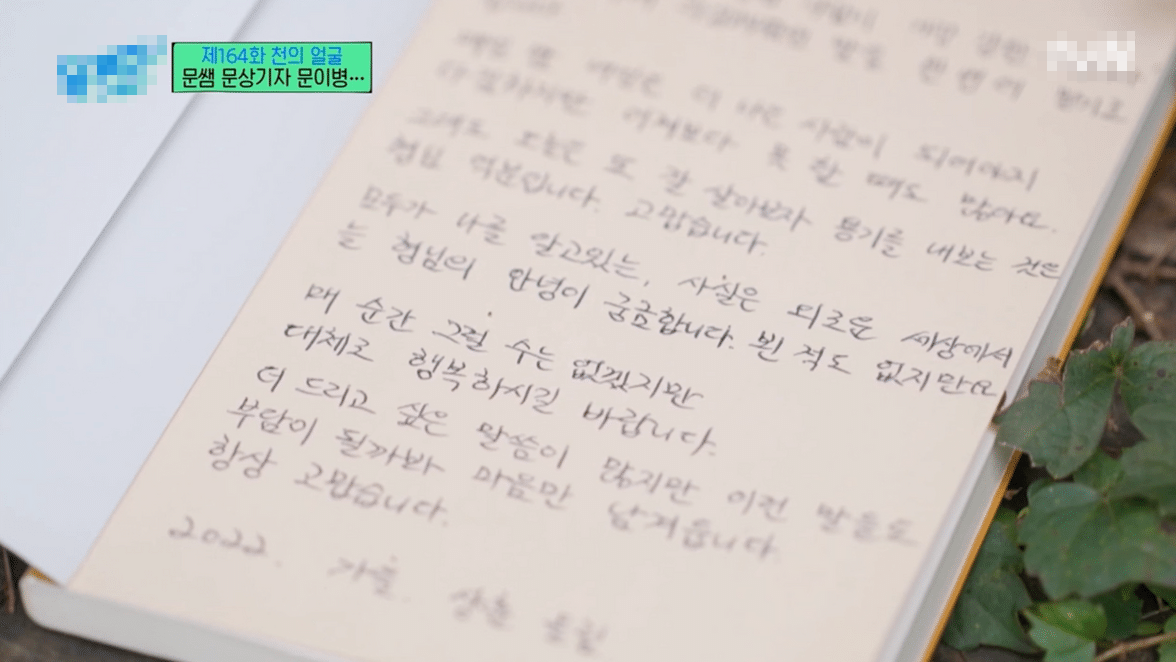 제164화 천의 얼굴
문쌤 문상기자 문이병…
tvN
매일 밤 내일은 더 나은 사람이 되어야지
다짐하지만 어제보다 못 할 때도 많아요.
그래도 오늘은 또 잘 살아보자 용기를 내보는 것은
형님 덕분입니다. 고맙습니다.
모두가 나를 알고있는, 사실은 외로운 세상에서
늘 형님의 안녕이 궁금합니다. 뵌 적도 없지만요
매 순간 그럴 수는 없겠지만
대체로 행복하시길 바랍니다.
더 드리고 싶은 말씀이 많지만 이런 말들도
부담이 될까봐 마음만 남겨둡니다.
항상 고맙습니다.
2022 가을. 상훈 올림